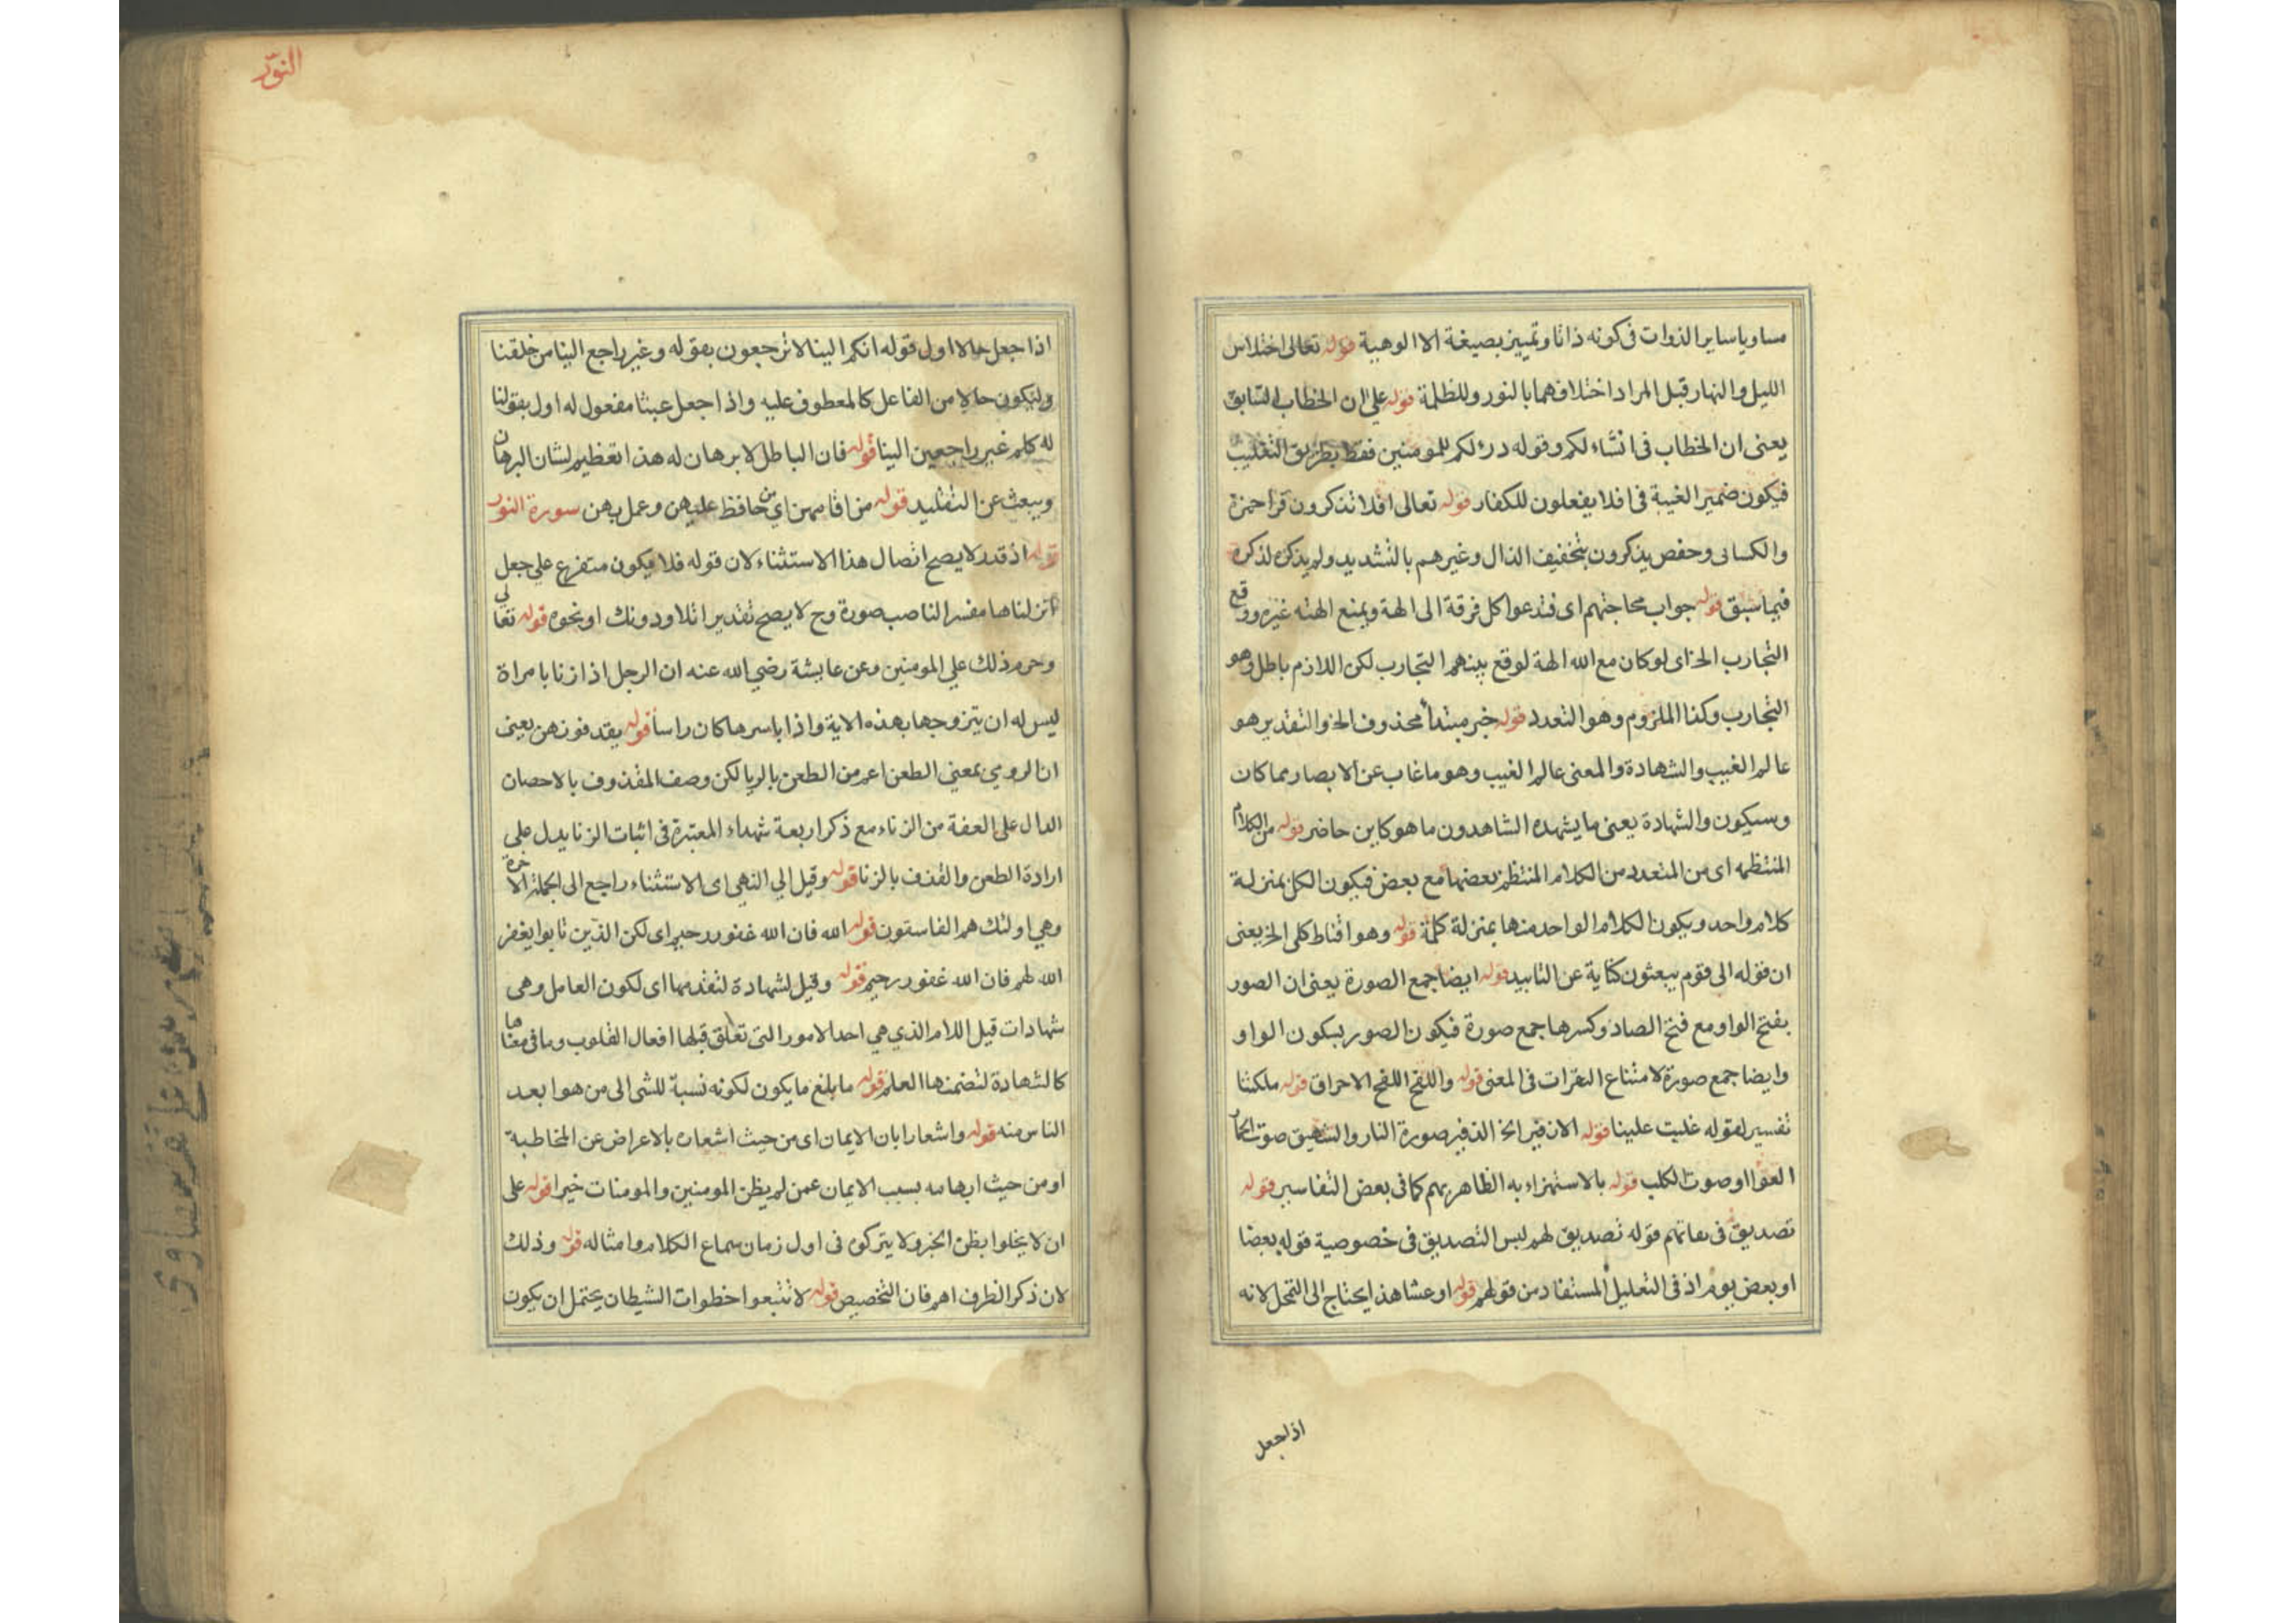 مساويا ساير الذوات فى كونه ذاتا وتمييز بصيغة الا الوهية قوله تعالى اختلاس
الليل والنهار قبل المراد اختلافهما بالنور وللظلمة قوله على ان الخطاب لسابق
يعنى ان الخطاب فى انشاء لكم وقوله درء لكم للمومنين فقط بطريق التغليب
فيكون ضمير الغيبة فى افلا يفعلون للكفار قوله تعالى افلا تذكرون قرا حمزة
والكسائى وحفص يذكرون بتخفيف الذال وغيرهم بالتشديد ولم يذكره لذكره
فيما سبق قوله جواب محاجتهم اى فتدعوا كل فرقة الى الهة ويمنع الهته غيره ووقع
التجارب الخ اى لو كان مع الله الهة لوقع بينهم التجارب لكن اللازم باطل وهو
التجارب وكذا الملزوم وهو التعدد قوله خبر مبتدأ محذوف الخ والتقدير هو
عالم الغيب والشهادة والمعنى عالم الغيب وهو ما غاب عن الابصار مما كان
وسيكون والشهادة يعنى ما يشهده الشاهدون ما هو كاين حاضر قوله من الكلام
المنتظمه اى من المتعدد من الكلام المنتظم بعضها مع بعض فيكون الكل بمنزلة
كلام واحد ويكون الكلام الواحد منها بمنزلة كلمة قوله وهو اقناط كلى الخ يعنى
ان قوله الى قوم يبعثون كناية عن التابيد قوله ايضا جمع الصورة يعنى ان الصور
بفتح الواو مع فتح الصاد وكسرها جمع صورة فيكون الصور بسكون الواو
وايضا جمع صورة لامتناع النقرات فى المعنى قوله واللفح اللفح الاحراق قوله ملكتنا
تفسير لقوله غلبت علينا قوله الانفير الخ الذفير صورة النار والشهيق صوت الحمار
العقوا او صوت الكلب قوله بالاستهزاء به الظاهر بهم كما فى بعض التفاسير قوله
تصديق فى مقاتهم قوله تصديق لهم ليس التصديق فى خصوصية قوله بعضا
او بعض يوم اذ فى التعليل المستفاد من قولهم قوله او عشا هذا يحتاج الى التمحل لانه
اذا جعل
النور
اذا جعل حالا اول قوله انكم الينا لا ترجعون بقوله وغير راجع الينا من خلقنا
ولتكون حالا من الفاعل كالمعطوف عليه واذا جعل عبثا مفعول له اول بقولنا
له كلم غير راجعين الينا قوله فان الباطل لا برهان له هذا تعظيم لشان البرهان
ويبعث عن التقليد قوله من اقامهن اى من حافظ عليهن وعمل بهن سورة النور
قوله اذ قدر لا يصح اتصال هذا الاستثناء لان قوله فلا فيكون متفرع على جعل
انزلناها مفسر الناصب صورة وح لا يصح تقدير اتلا ودونك او نحوه قوله تعالى
وحرم ذلك على المومنين وعن عايشة رضى الله عنه ان الرجل اذا زنا بامراة
ليس له ان يتزوجها بهذه الاية واذا باسرها كان راسا قوله يقدفون هن يعنى
ان الرومى بمعنى الطعن اعم من الطعن بالريا لكن وصف المقذوف بالاحصان
الدال على العفة من الزناء مع ذكر اربعة شهداء المعتبرة فى اثبات الزنا يدل على
ارادة الطعن والقذف بالزنا قوله وقيل الى النهى اى الاستثناء راجع الى الجملة الاخرة
وهى اولئك هم الفاسقون قوله الله فان الله غفور رحيم اى لكن الذين تابوا يغفر
الله لهم فان الله غفور رحيم قوله وقيل لشهادة لتقدمها اى لكون العامل وهى
شهادات قيل اللام الذى هى احد الامور التى تعلق قبلها افعال القلوب وما فى معناها
كالشهادة لتضمنها العلم قوله ما بلغ ما يكون لكونه نسبة للشى الى من هو ابعد
الناس منه قوله واشعارا بان الايمان اى من حيث اشعاره بالاعراض عن المخاطبة
او من حيث ايهامه بسبب الايمان عمن لم يظن المومنين والمومنات خيرا قوله على
ان لا يخلوا بظن الخير ولا يتركوه فى اول زمان سماع الكلام وامثاله قوله وذلك
لان ذكر الظرف اهم فان التخصيص قوله لا تتبعوا خطوات الشيطان يحتمل ان يكون